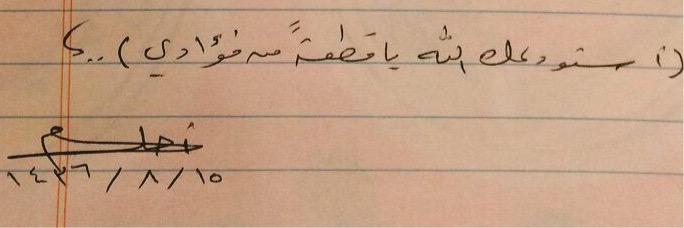 (أستودعك الله يا قطعةً من فؤادي)..
أحلم
١٤٣٦ / ٨ / ١٥